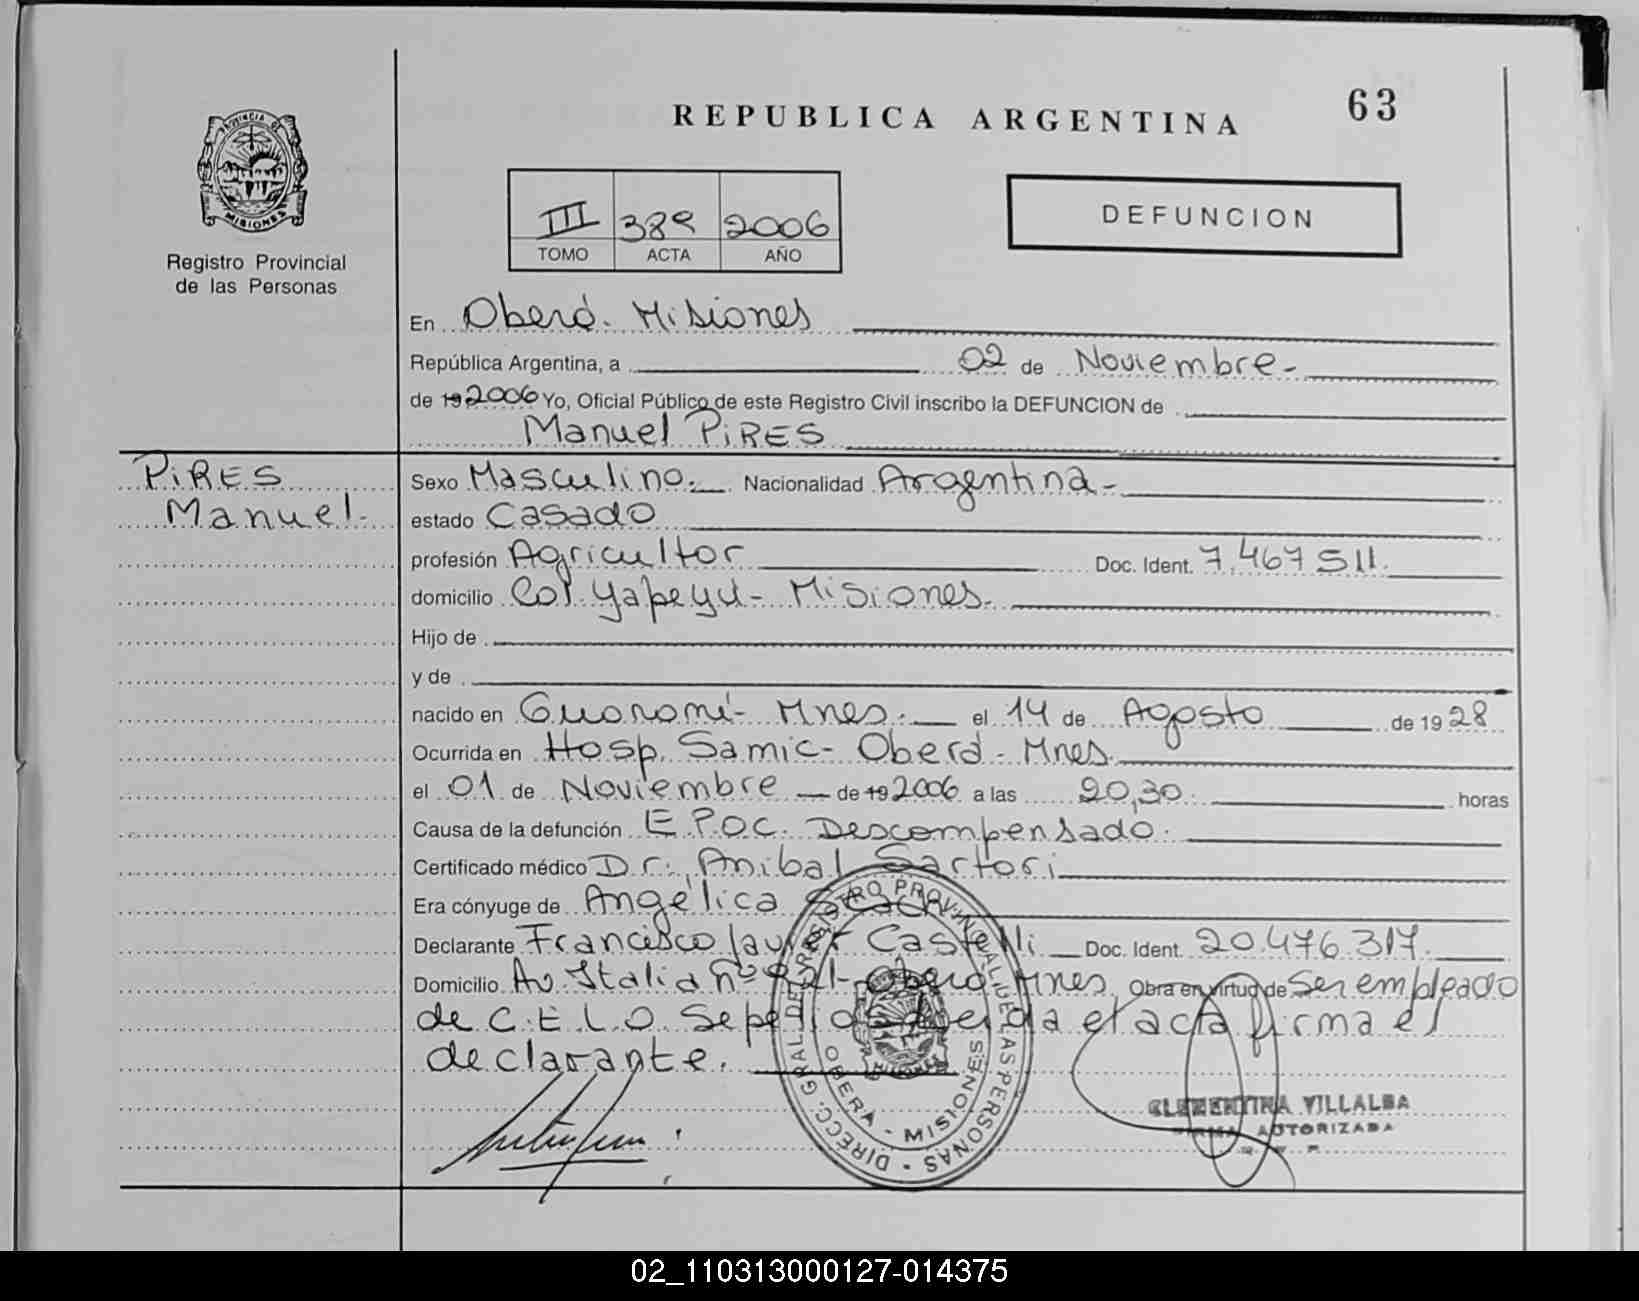 63
REPUBLICA ARGENTINA
PROVINCIA DE
MISIONES
Registro Provincial
de las Personas
III 389 2006
TOMO ACTA AÑO
DEFUNCION
En Oberá. Misiones
República Argentina, a 02 de Noviembre.-
de 19 2006 Yo, Oficial Público de este Registro Civil inscribo la DEFUNCION de
Manuel PiRES
PiRES
Manuel.-
Sexo Masculino. Nacionalidad Argentina-
estado Casado
profesión Agricultor Doc. Ident. 7.467511.
domicilio Col. Yapeyú- Misiones.
Hijo de
y de
nacido en Guaraní- Mnes. el 14 de Agosto de 1928
Ocurrida en Hosp. Samic- Oberá- Mnes.
el 01 de Noviembre de 19 2006 a las 20,30. horas
Causa de la defunción EPOC. Descompensado.
Certificado médico Dr. Anibal Sartori
Era cónyuge de Angélica
Declarante Francisco Javier Castelli Doc. Ident. 20.476.317.
Domicilio Av. Italia nº Oberá- Mnes, Obra en virtud de Ser empleado
de C.E.L.O. el acta firma el
declarante.
DIRECC. GRAL. DE REGISTRO PROVINCIAL DE LAS PERSONAS
OBERA - MISIONES
CLEMENTINA VILLALBA
FIRMA AUTORIZADA
02_110313000127-014375